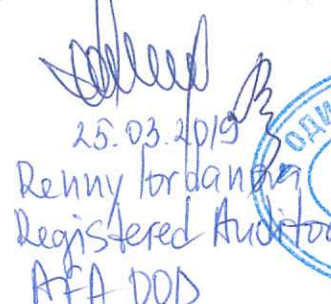 25.03.2019
Renny Iordanova
Registered Auditor
AFA OOD
ОДИ